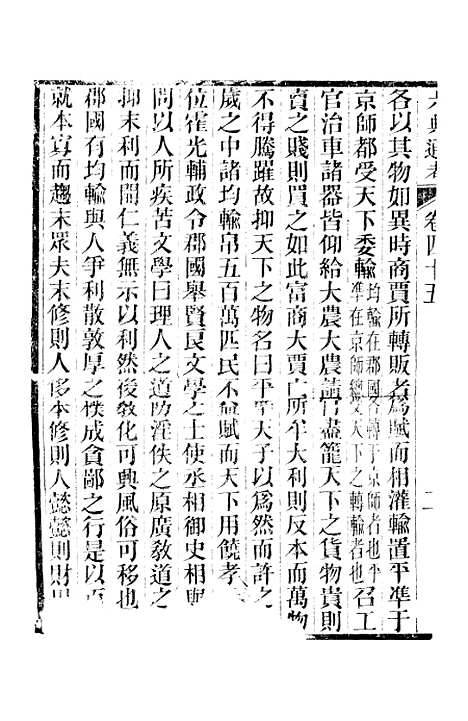 六典通考 卷四十五 二
各以其物如異時商賈所轉販者為賦而相灌輸置平準于
京師都受天下委輸均輸在郡國各轉于京師者也平準在京師總受天下之轉輸者也召工
官治車諸器皆仰給大農大農諸官盡籠天下之貨物貴則
賣之賤則買之如此富商大賈亡所牟大利則反本而萬物
不得騰躍故抑天下之物名曰平準天子以為然而許之
歲之中諸均輸帛五百萬匹民不益賦而天下用饒孝
位霍光輔政令郡國舉賢良文學之士使丞相御史相與
問以人所疾苦文學曰理人之道防淫佚之原廣敎道之
抑末利而開仁義無示以利然後敎化可興風俗可移也
郡國有均輸與人爭利散敦厚之樸成貪鄙之行是以百
就本寡而趨末眾夫末修則人侈本修則人懿懿則財用